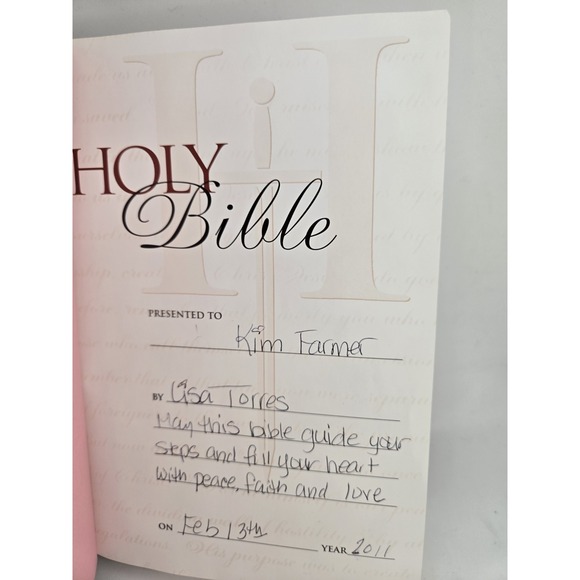 HOLY
Bible
PRESENTED TO Kim Farmer
BY Lisa Torres
May this bible guide your
steps and fill your heart
with peace, faith and love
ON Feb 13th
YEAR 2011